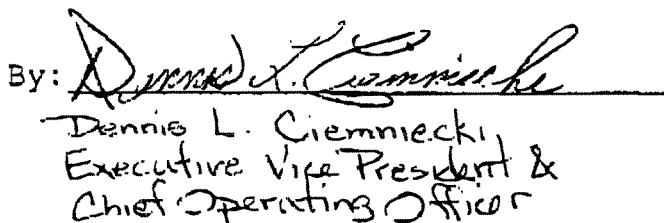 By: Dennis L. Ciemniecki
Dennis L. Ciemniecki,
Executive Vice President &
Chief Operating Officer